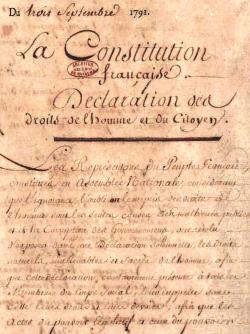 Du trois Septembre 1791.
La Constitution
française.
Déclaration des
droits de l'homme et du Citoyen.
Les Représentans du Peuple François
constitués en Assemblée Nationale, considérant
que l'ignorance, l'oubli ou le mépris des droits de
l'homme sont les seules causes des malheurs publics
et de la Corruption des Gouvernemens, ont résolu
d'exposer dans une Déclaration Solemnelle, les Droits
naturels, inaliénables et Sacrés de l'homme, afin
que cette Déclaration, constamment présente à tous les
Membres du Corps social,
afin que les
Actes du pouvoir législatif et ceux du pouvoir